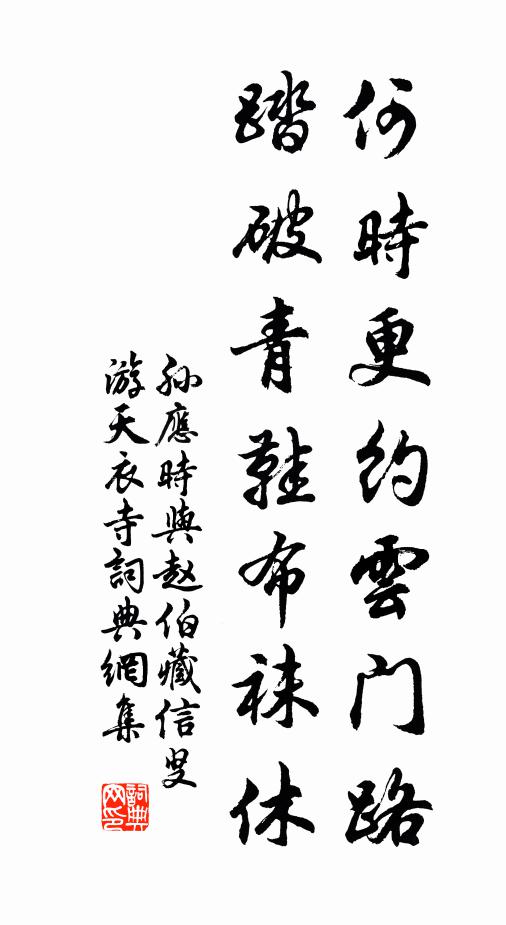 何時更約雲門路
踏破青鞋布袜休
孫應時與赵伯藏信叟
游天衣寺詞典網集
詞典网印